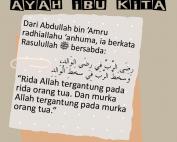 AYAH IBU KITA
Dari Abdullah bin 'Amru
radhiallahu 'anhuma, ia berkata
Rasulullah ﷺ bersabda:
رِضَى الرَّبِّ فِي رِضَى الْوَالِدِ،
وَسَخَطُ الرَّبِّ فِي سَخَطِ الْوَالِدِ
"Rida Allah tergantung pada
rida orang tua. Dan murka
Allah tergantung pada murka
orang tua."